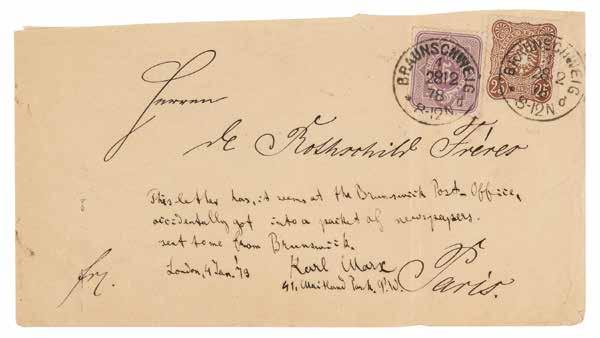 BRAUNSCHWEIG
1
28 12
78
* 8-12N. d
BRAUNSCHWEIG
28 2
8-12N. d
25 25
Herren
de Rothschild Frères
This letter has, it seems at the Brunswick Post-Office,
accidentally got into a packet of newspapers.
sent to me from Brunswick.
London, 4 Jan. 79 Karl Marx
41, Maitland Park. N.W.
frz.
Paris.